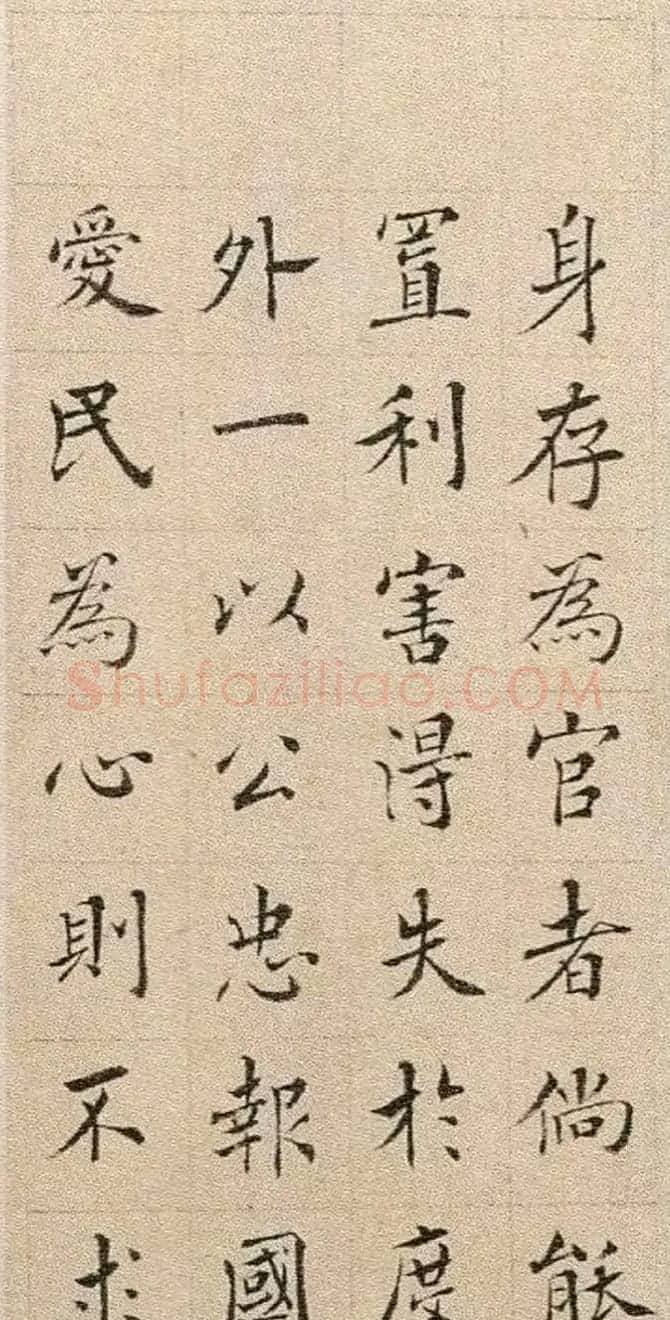 身存為官者倘能
置利害得失於度
外一以公忠報國
愛民為心則不求
Shufaziliao.COM